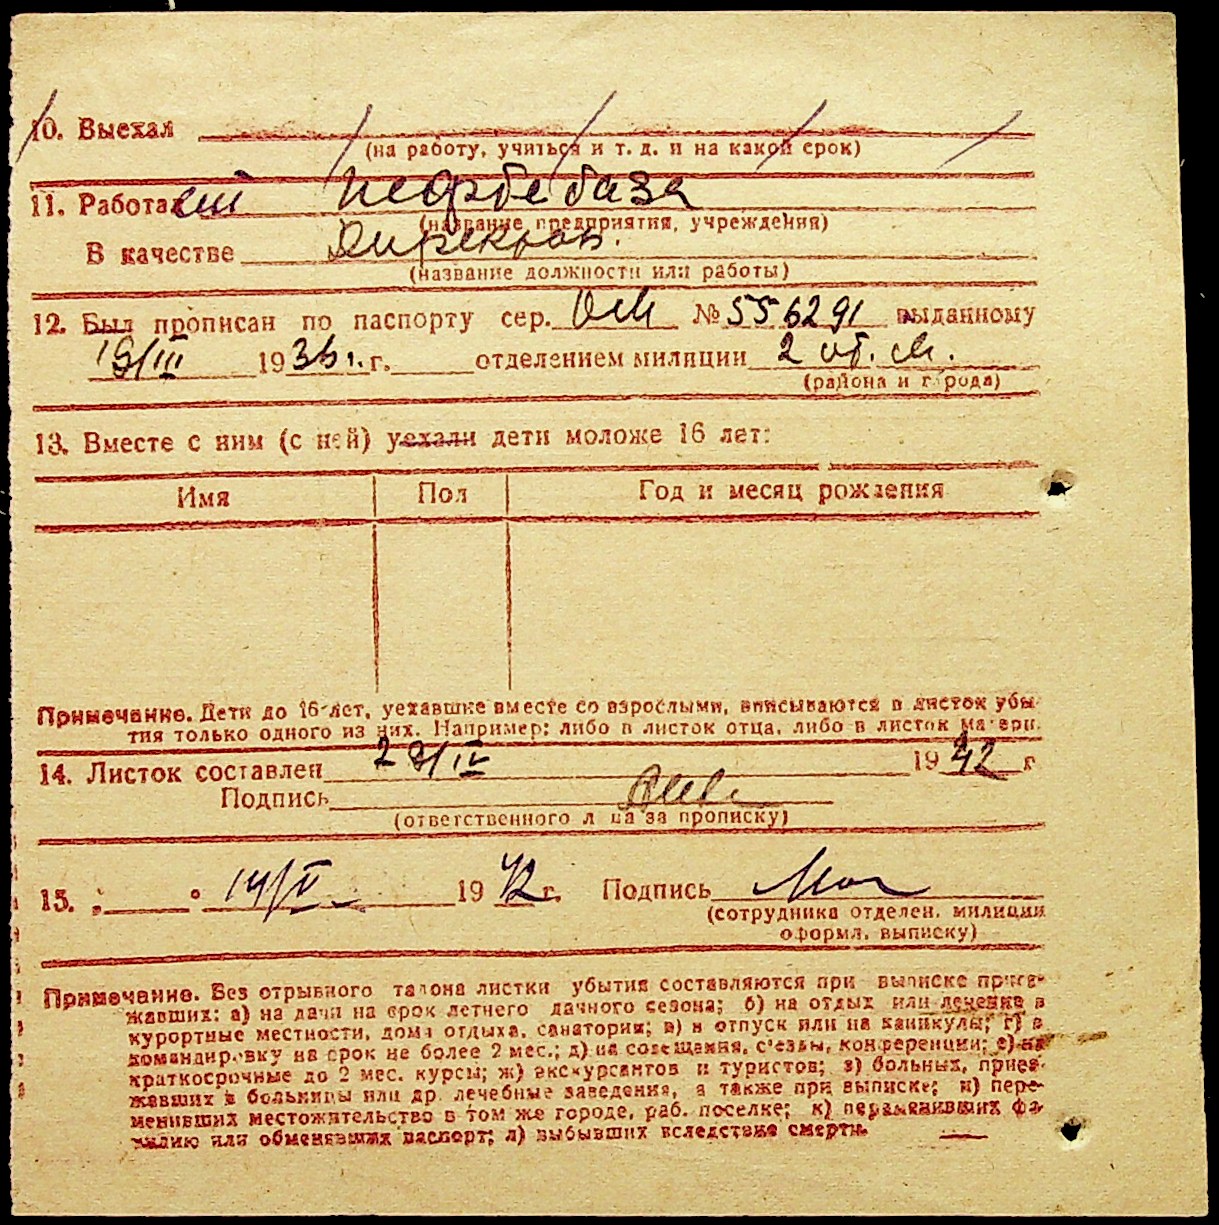 10. Выехал
(на работу, учиться и т. д. и на какой срок)
11. Работает Нефтебаза
(название предприятия, учреждения)
В качестве Директор.
(название должности или работы)
12. Был прописан по паспорту сер. № 556291 выданному
19/III 1936 г. г. отделением милиции 2 об. м.
(района и города)
13. Вместе с ним (с ней) уехали дети моложе 16 лет:
Имя Пол Год и месяц рождения
Примечание. Дети до 16-лет, уехавшие вместе со взрослыми, вписываются в листок убы-
тия только одного из них. Например: либо в листок отца, либо в листок матери.
14. Листок составлен 29/IV 1942 г
Подпись
(ответственного лица за прописку)
15. " " 14/V 1942 г. Подпись
(сотрудника отделен. милиции
оформл. выписку)
Примечание. Без отрывного талона листки убытия составляются при выписке приез-
жавших: а) на дачи на срок летнего дачного сезона; б) на отдых или лечение в
курортные местности, дома отдыха, санатории; в) в отпуск или на каникулы; г) в
командировку на срок не более 2 мес.; д) на совещания, с'езды, конференции; е) на
краткосрочные до 2 мес. курсы; ж) экскурсантов и туристов; з) больных, приез-
жавших в больницы или др. лечебные заведения, а также при выписке; и) пере-
менивших местожительство в том же городе, раб. поселке; к) переменивших фа-
милию или обменявших паспорт; л) выбывших вследствие смерти.